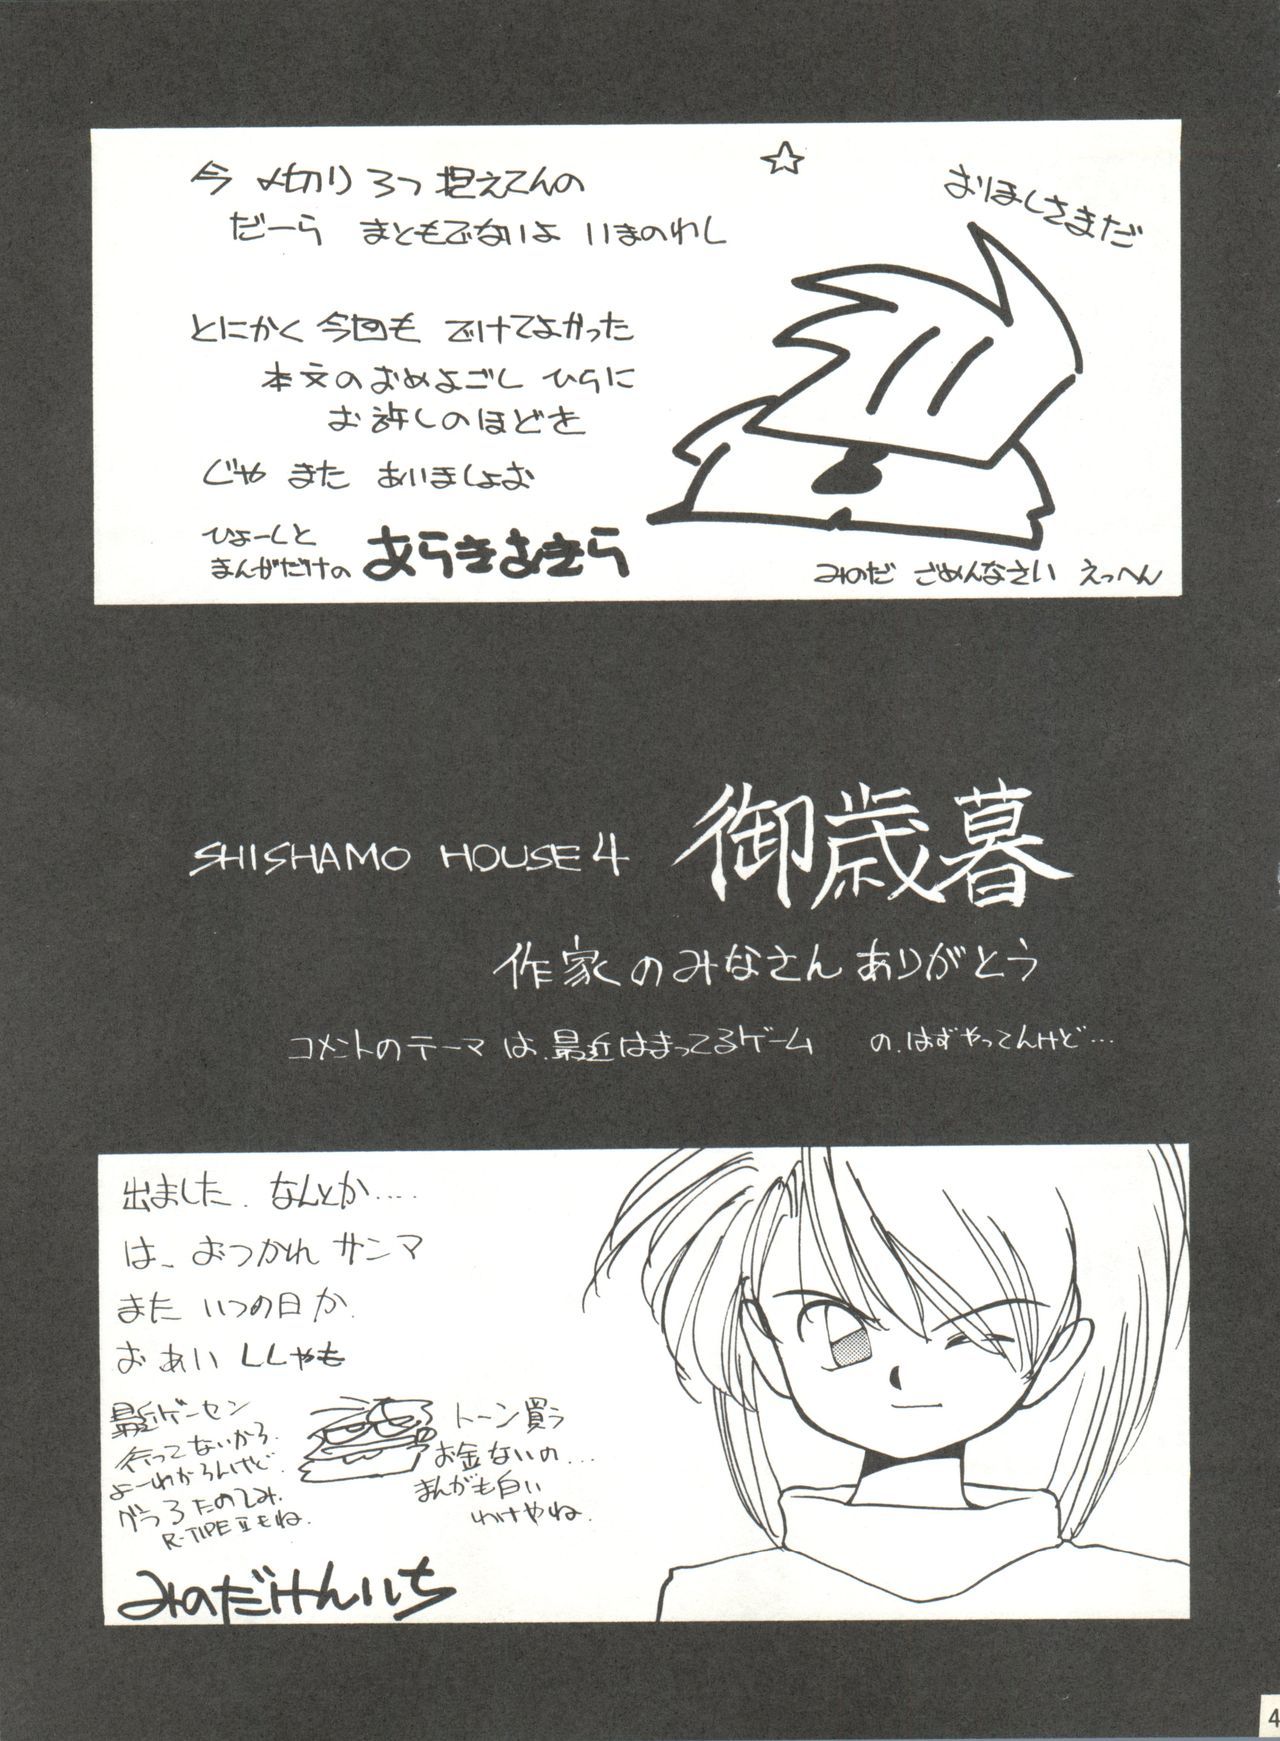 今 〆切り 3つ 抱えてんの
だーら まともでないよ いまのわし
とにかく 今回も でけてよかった
本文のおめよごし ひらに
お許しのほどを
じゃ また あいましょお
ひょーしと
まんがだけの あらきあきら
☆
おほしさまだ
みのだ ごめんなさい えっへん
SHISHAMO HOUSE 4 御歳暮
作家のみなさん ありがとう
コメントのテーマは、最近はまってるゲーム の、はずやってんけど…
出ました、なんとか.....
は、おつかれサンマ
また いつの日か、
おあいししゃも
最近ゲーセン
行ってないから、
よーわからんけど、
グラ3たのしみ、
R-TIPE IIもね、
トーン買う
お金ないの...
まんがも白い
わけやね.
みのだけんいち
4